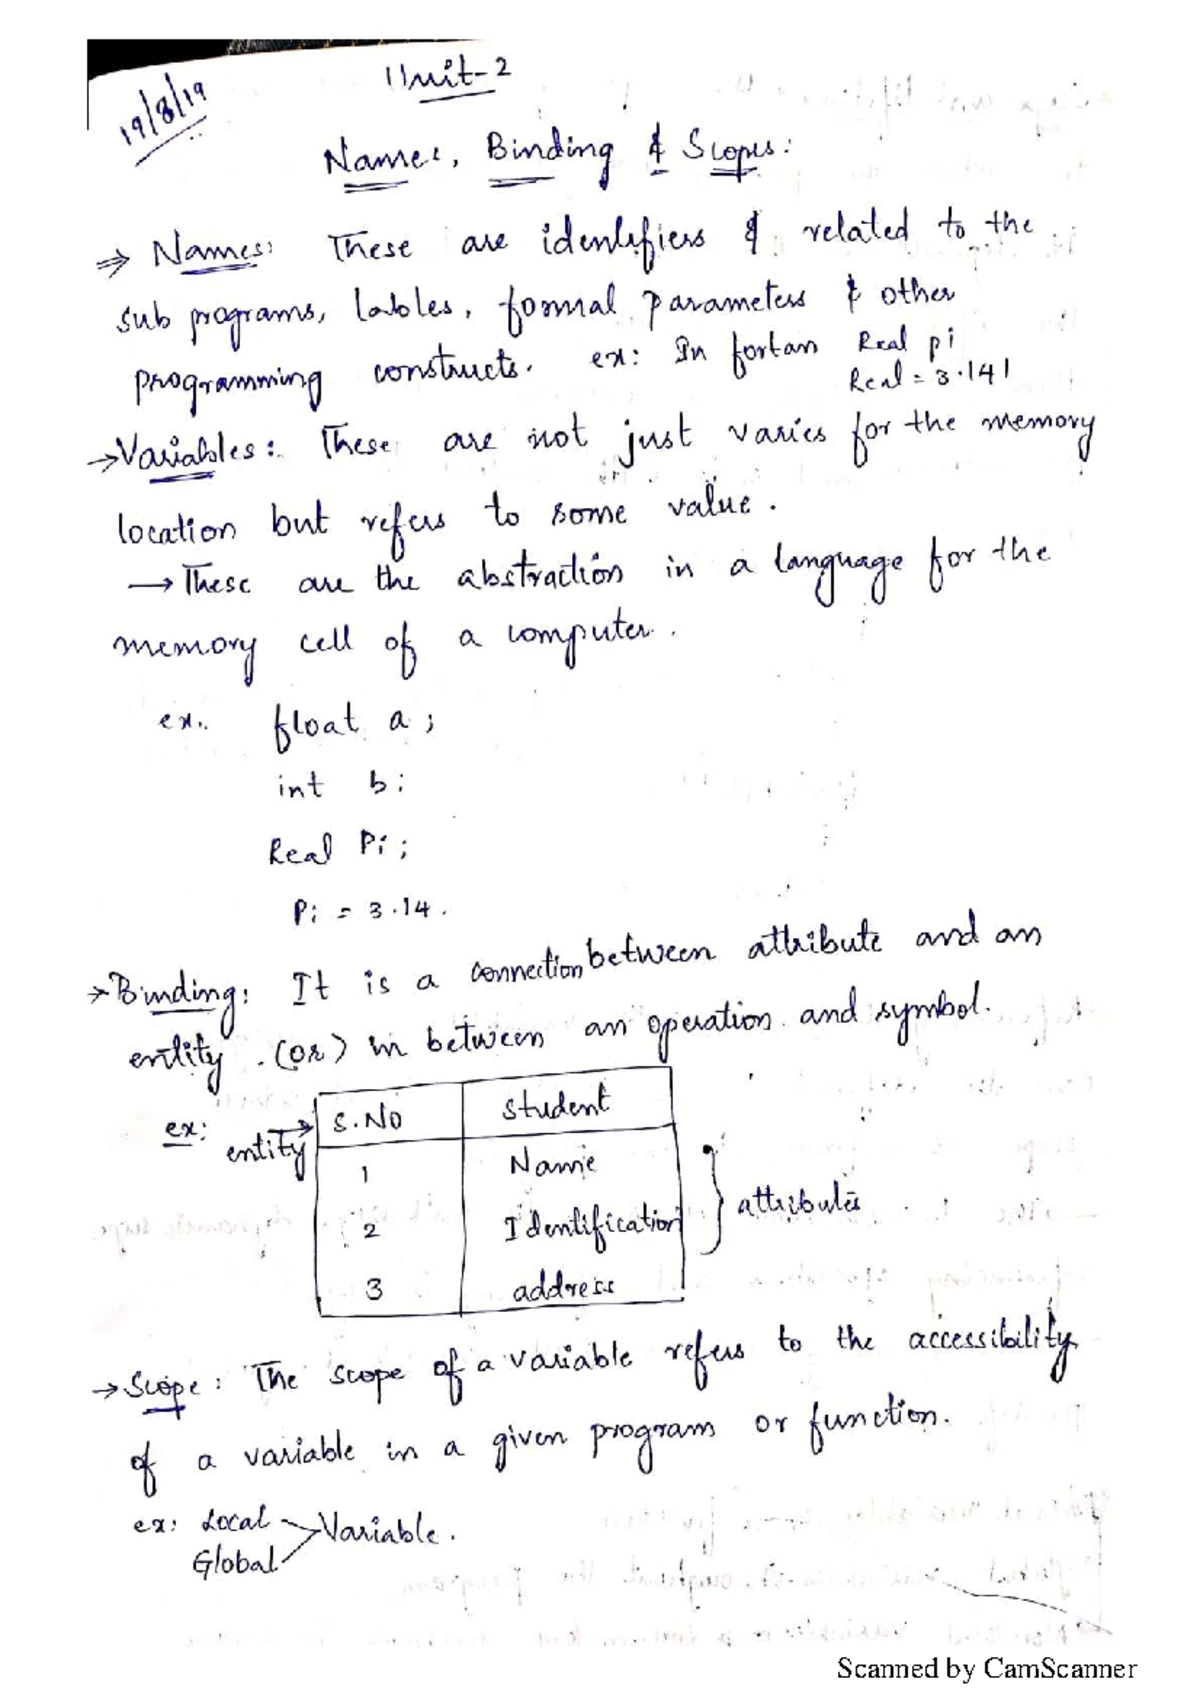 19/8/19
Unit-2
Names, Binding & Scopes:
⇒ Names: These are identifiers & related to the
sub programs, lables, formal parameters & other
programming constructs. ex: In fortan Real pi
Real = 3.141
→ Variables: These are not just varies for the memory
location but refers to some value.
→ These are the abstraction in a language for the
memory cell of a computer.
ex. float a;
int b;
Real Pi;
Pi = 3.14.
→ Binding: It is a connection between attribute and an
entity. (or) in between an operation and symbol.
ex: entity → S.No Student
1 Name
2 Identification } attributes
3 address
→ Scope: The scope of a variable refers to the accessibility
of a variable in a given program or function.
ex: Local
Global Variable.
Scanned by CamScanner